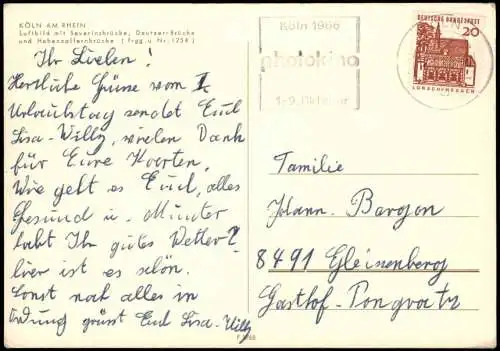 KÖLN AM RHEIN
Luftbild mit Severinsbrücke, Deutzer-Brücke
und Hohenzollernbrücke ( Frgg. u. Nr. 1758 )
Ihr Lieben!
Herzliche Grüsse vom 1.
Urlaubstag sendet Euch
Lisa-Willy, vielen Dank
für Eure Karten,
Wie geht es Euch, alles
Gesund u. Munter
habt Ihr gutes Wetter?
hier ist es schön.
Sonst noch alles in
Ordnung grüsst Euch Lisa-Willy
Köln 1966
photokina
1.-9. Oktober
DEUTSCHE BUNDESPOST
20
LORSCH/HESSEN
Familie
Johann Bargon
8491 Gleissenberg
Gasthof-Pongratz